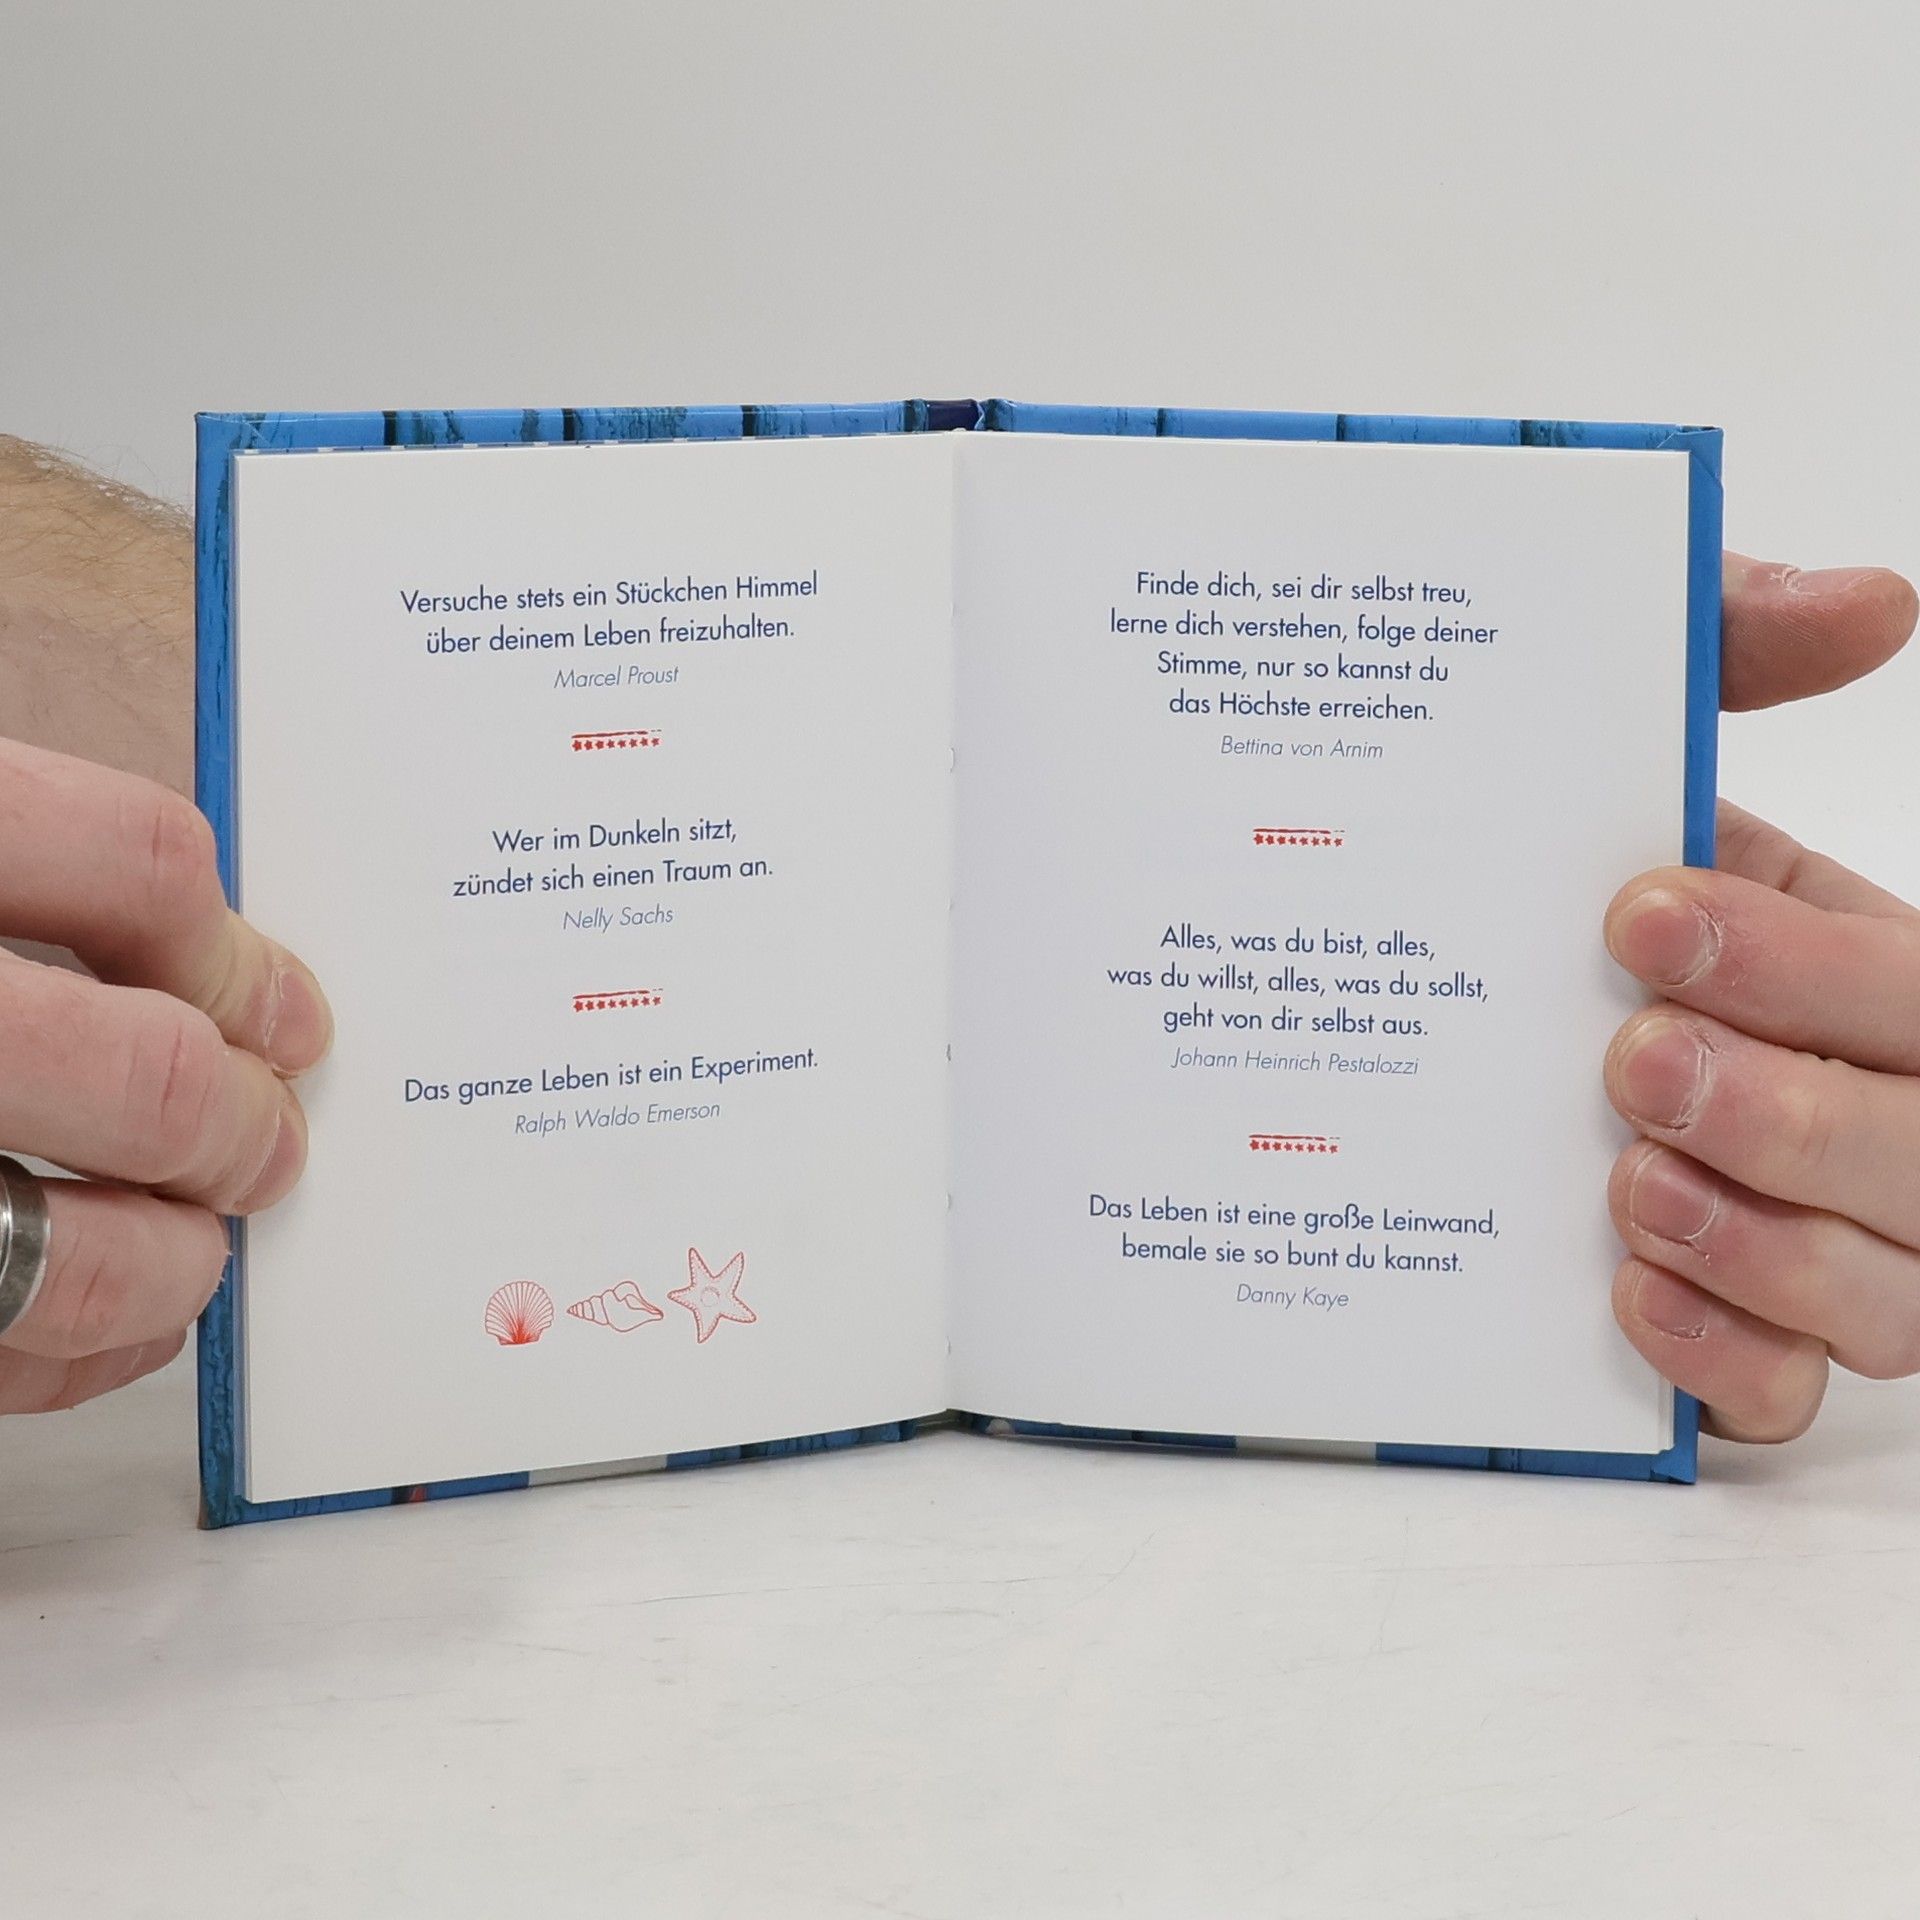 Versuche stets ein Stückchen Himmel
über deinem Leben freizuhalten.
Marcel Proust
Wer im Dunkeln sitzt,
zündet sich einen Traum an.
Nelly Sachs
Das ganze Leben ist ein Experiment.
Ralph Waldo Emerson
Finde dich, sei dir selbst treu,
lerne dich verstehen, folge deiner
Stimme, nur so kannst du
das Höchste erreichen.
Bettina von Arnim
Alles, was du bist, alles,
was du willst, alles, was du sollst,
geht von dir selbst aus.
Johann Heinrich Pestalozzi
Das Leben ist eine große Leinwand,
bemale sie so bunt du kannst.
Danny Kaye